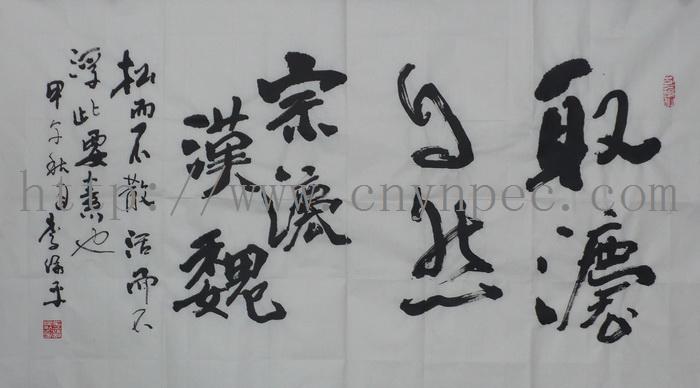 取灋
自然
宗源
漢魏
松而不散活而不
浮此要書也
甲午秋月李保平
http://www.cnynpec.com